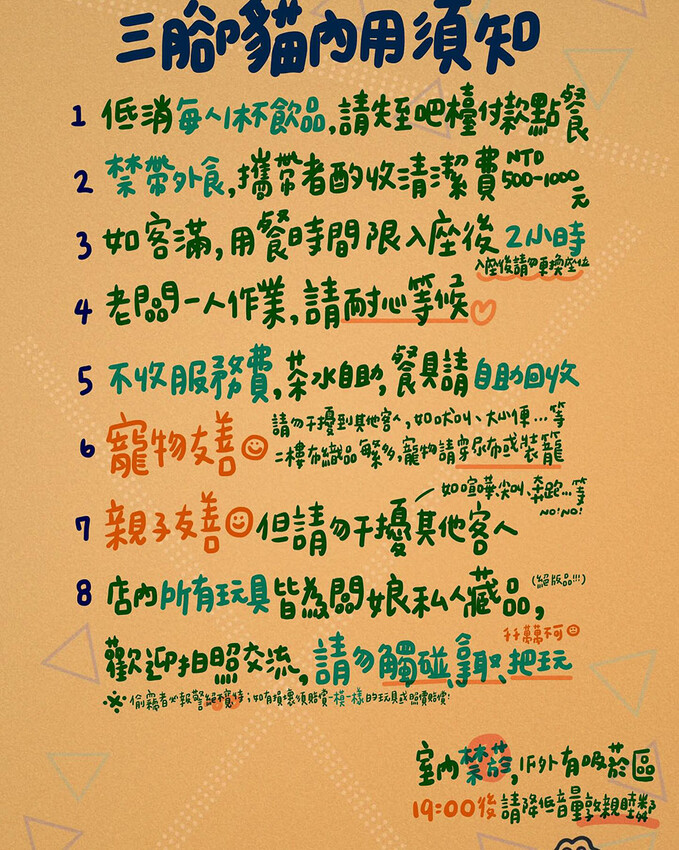 三腳貓內用須知
1 低消每人1杯飲品,請先至吧檯付款點餐
2 禁帶外食,攜帶者酌收清潔費NTD 500-1000元
3 如客滿,用餐時間限入座後2小時
入座後請勿更換座位
4 老闆一人作業,請耐心等候♡
5 不收服務費,茶水自助,餐具請自助回收
6 寵物友善 請勿干擾到其他客人,如吠叫、大小便...等
二樓布織品繁多,寵物請穿尿布或裝籠
如喧嘩尖叫、奔跑...等
NO!NO!
7 親子友善 但請勿干擾其他客人
8 店內所有玩具皆為闆娘私人藏品, (絕版品!!!)
千萬不可
歡迎拍照交流,請勿觸碰、拿取、把玩
※ 偷竊者必報警絕不寬待;如有損壞須賠償一模一樣的玩具或照價賠償!
室內禁菸,1F外有吸菸區
19:00後請降低音量敦親睦鄰